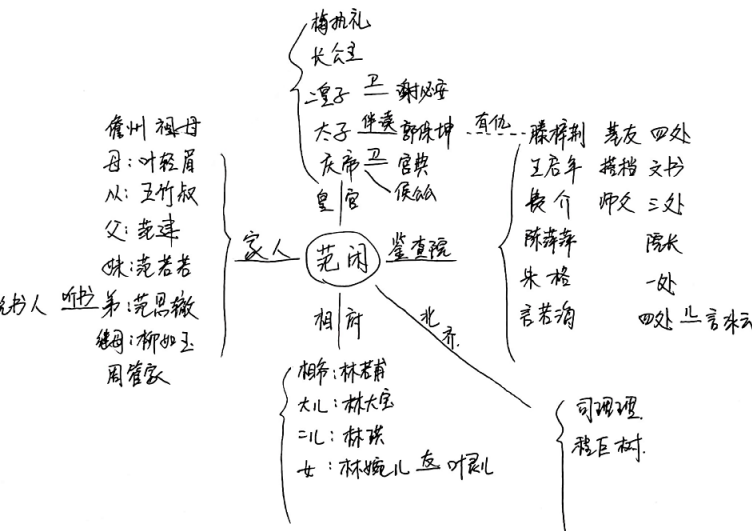 梅执礼
长公主
二皇子 卫 谢必安
太子 伴读 郭保坤 有仇 滕梓荆 基友 四处
庆帝 卫 宫典
侯公公
皇宫
王启年 搭档 文书
费介 师父 三处
陈萍萍 院长
朱格 一处
言若海 四处 儿 言冰云
儋州祖母
母:叶轻眉
从:五竹叔
父:范建
妹:范若若
说书人 听书 弟:范思辙
继母:柳如玉
周管家
家人 范闲 鉴查院
相府
相爷:林若甫
大儿:林大宝
二儿:林珙
女:林婉儿 友 叶灵儿
北齐
司理理
程巨树